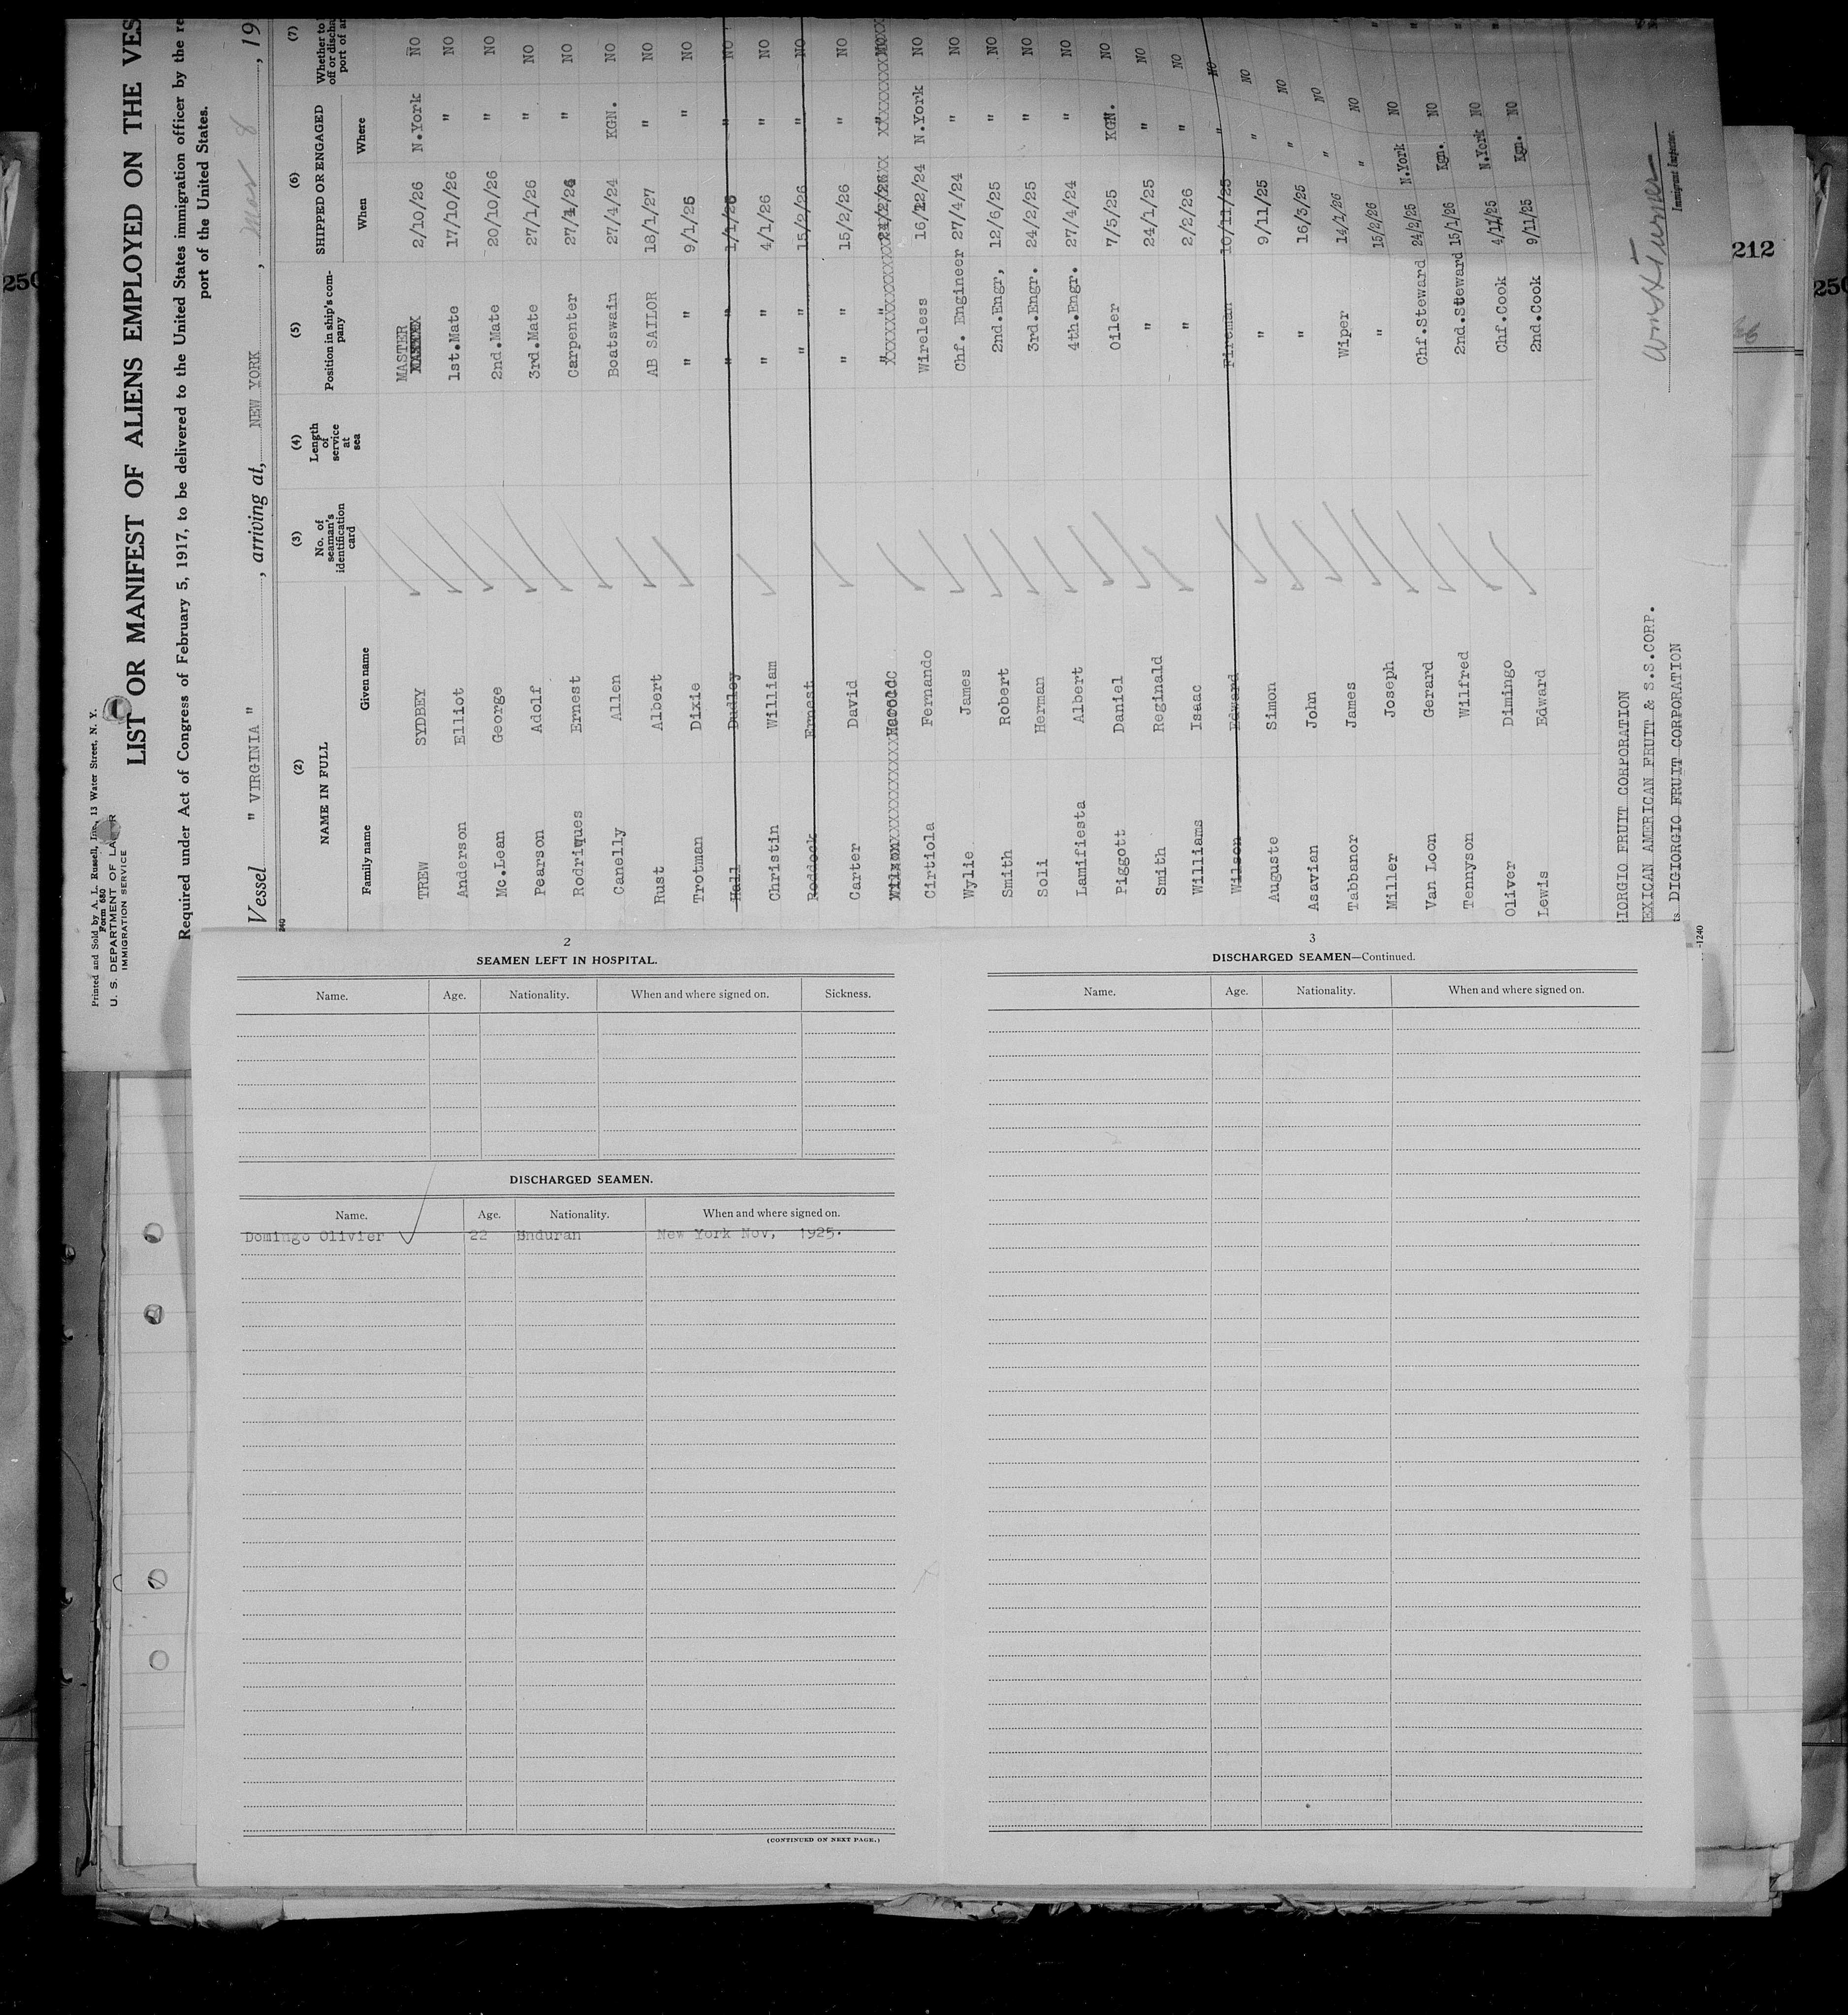 Printed and Sold by A. L. Russell, Inc., 13 Water Street, N. Y.
Form 680
U. S. DEPARTMENT OF LABOR
IMMIGRATION SERVICE
LIST OR MANIFEST OF ALIENS EMPLOYED ON THE VES
Required under Act of Congress of February 5, 1917, to be delivered to the United States immigration officer by the re
port of the United States.
Vessel " VIRGINIA " , arriving at, NEW YORK , Mar 8 , 19
(2) (3) (4) (5) (6) (7)
NAME IN FULL No. of seaman's identification card Length of service at sea Position in ship's company SHIPPED OR ENGAGED Whether to
off or discha
port of ar
Family name Given name When Where
TREW SYDBEY MASTER 2/10/26 N.York NO
Anderson Elliot 1st.Mate 17/10/26 " NO
Mc.Lean George 2nd.Mate 20/10/26 " NO
Pearson Adolf 3rd.Mate 27/1/26 " NO
Rodriques Ernest Carpenter 27/4/24 " NO
Canelly Allen Boatswain 27/4/24 KGN. NO
Rust Albert AB SAILOR 18/1/27 " NO
Trotman Dixie " 9/1/26 " NO
Hall Dudley " 1/1/26 " NO
Christin William " 4/1/26 " NO
Roddock Ernest " 15/2/26 " NO
Carter David " 15/2/26 " NO
" 24/2/26 "
Cirtiola Fernando Wireless 16/12/24 N.York NO
Wylie James Chf. Engineer 27/4/24 " NO
Smith Robert 2nd.Engr, 12/6/25 " NO
Soli Herman 3rd.Engr. 24/2/25 " NO
Lamifiesta Albert 4th.Engr. 27/4/24 " NO
Piggott Daniel Oiler 7/5/25 KGN. NO
Smith Reginald " 24/1/25 " NO
Williams Isaac " 2/2/26 " NO
Wilson Edward Fireman 10/11/25 " NO
Auguste Simon " 9/11/25 " NO
Asavian John " 16/3/25 " NO
Tabbanor James Wiper 14/1/26 " NO
Miller Joseph " 15/2/26 " NO
Van Loon Gerard Chf.Steward 24/2/25 N.York NO
Tennyson Wilfred 2nd.Steward 15/1/26 Kgn. NO
Oliver Dimingo Chf.Cook 4/11/25 N.York NO
Lewis Edward 2nd.Cook 9/11/25 Kgn. NO
IORGIO FRUIT CORPORATION
EXICAN AMERICAN FRUIT & S.S.CORP.
ts DIGIORGIO FRUIT CORPORATION
Immigrant Inspector.
-1240
212
250
250
2
SEAMEN LEFT IN HOSPITAL.
Name. Age. Nationality. When and where signed on. Sickness.
DISCHARGED SEAMEN.
Name. Age. Nationality. When and where signed on.
Domingo Olivier 22 Hnduran New York Nov, 1925.
(CONTINUED ON NEXT PAGE.)
3
DISCHARGED SEAMEN—Continued.
Name. Age. Nationality. When and where signed on.